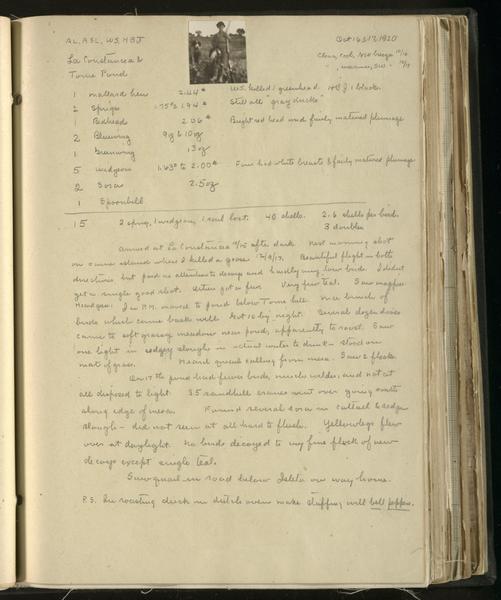 AL, ASL, WS, HBJ
Oct 16 & 17, 1920
La Constancia &
Clear, Cool, NW breeze 10/16
Tome Pond
" , warmer, SW - 10/17
1 mallard hen 2.44# WS. killed 1 greenhead. HBJ 1 black.
2 Sprigs 1.75 & 1.94# Still all "gray ducks"
1 Redhead 2.06# Bright red head and fairly matured plumage
2 Bluewing 9 & 10 oz
1 Greenwing 13 oz
5 widgeon 1.63# to 2.00# Four had white breasts & fairly matured plumage
2 Sora 2.5 oz
1 Spoonbill
15 2 sprig, 1 widgeon, 1 teal lost. 40 shells. 2.6 shells per bird.
3 doubles
Arrived at La Constancia 10/15 after dark. Next morning shot
on same island where I killed a goose 12/9/17. Beautiful flight in both
directions but paid no attention to decoys and hardly any low birds. I didnt
get a single good shot. Others got a few. Very few teal. Saw magpies
In P.M. moved to pond below Tome hill. Nice bunch of
birds which came back well. Got 10 by night. Several dozen
came to soft grassy meadow near pond, apparently to roost. Saw
one light in sedgy slough in actual water to drink - stood on
mat of grass. Heard quail calling from mesa. Saw a flock.
On 17 the pond had fewer birds, much wilder, and not at
all disposed to light. 35 sandhill cranes went over going south
along edge of mesa. Found several sora in cattail & sedge
slough - did not seem at all hard to flush. Yellowlegs flew
over at daylight. No birds decoyed to my fine flock of new
decoys except single teal.
Saw quail in road below Isleta on way home.
P.S. In roasting duck in dutch oven make stuffing with bell peppers.